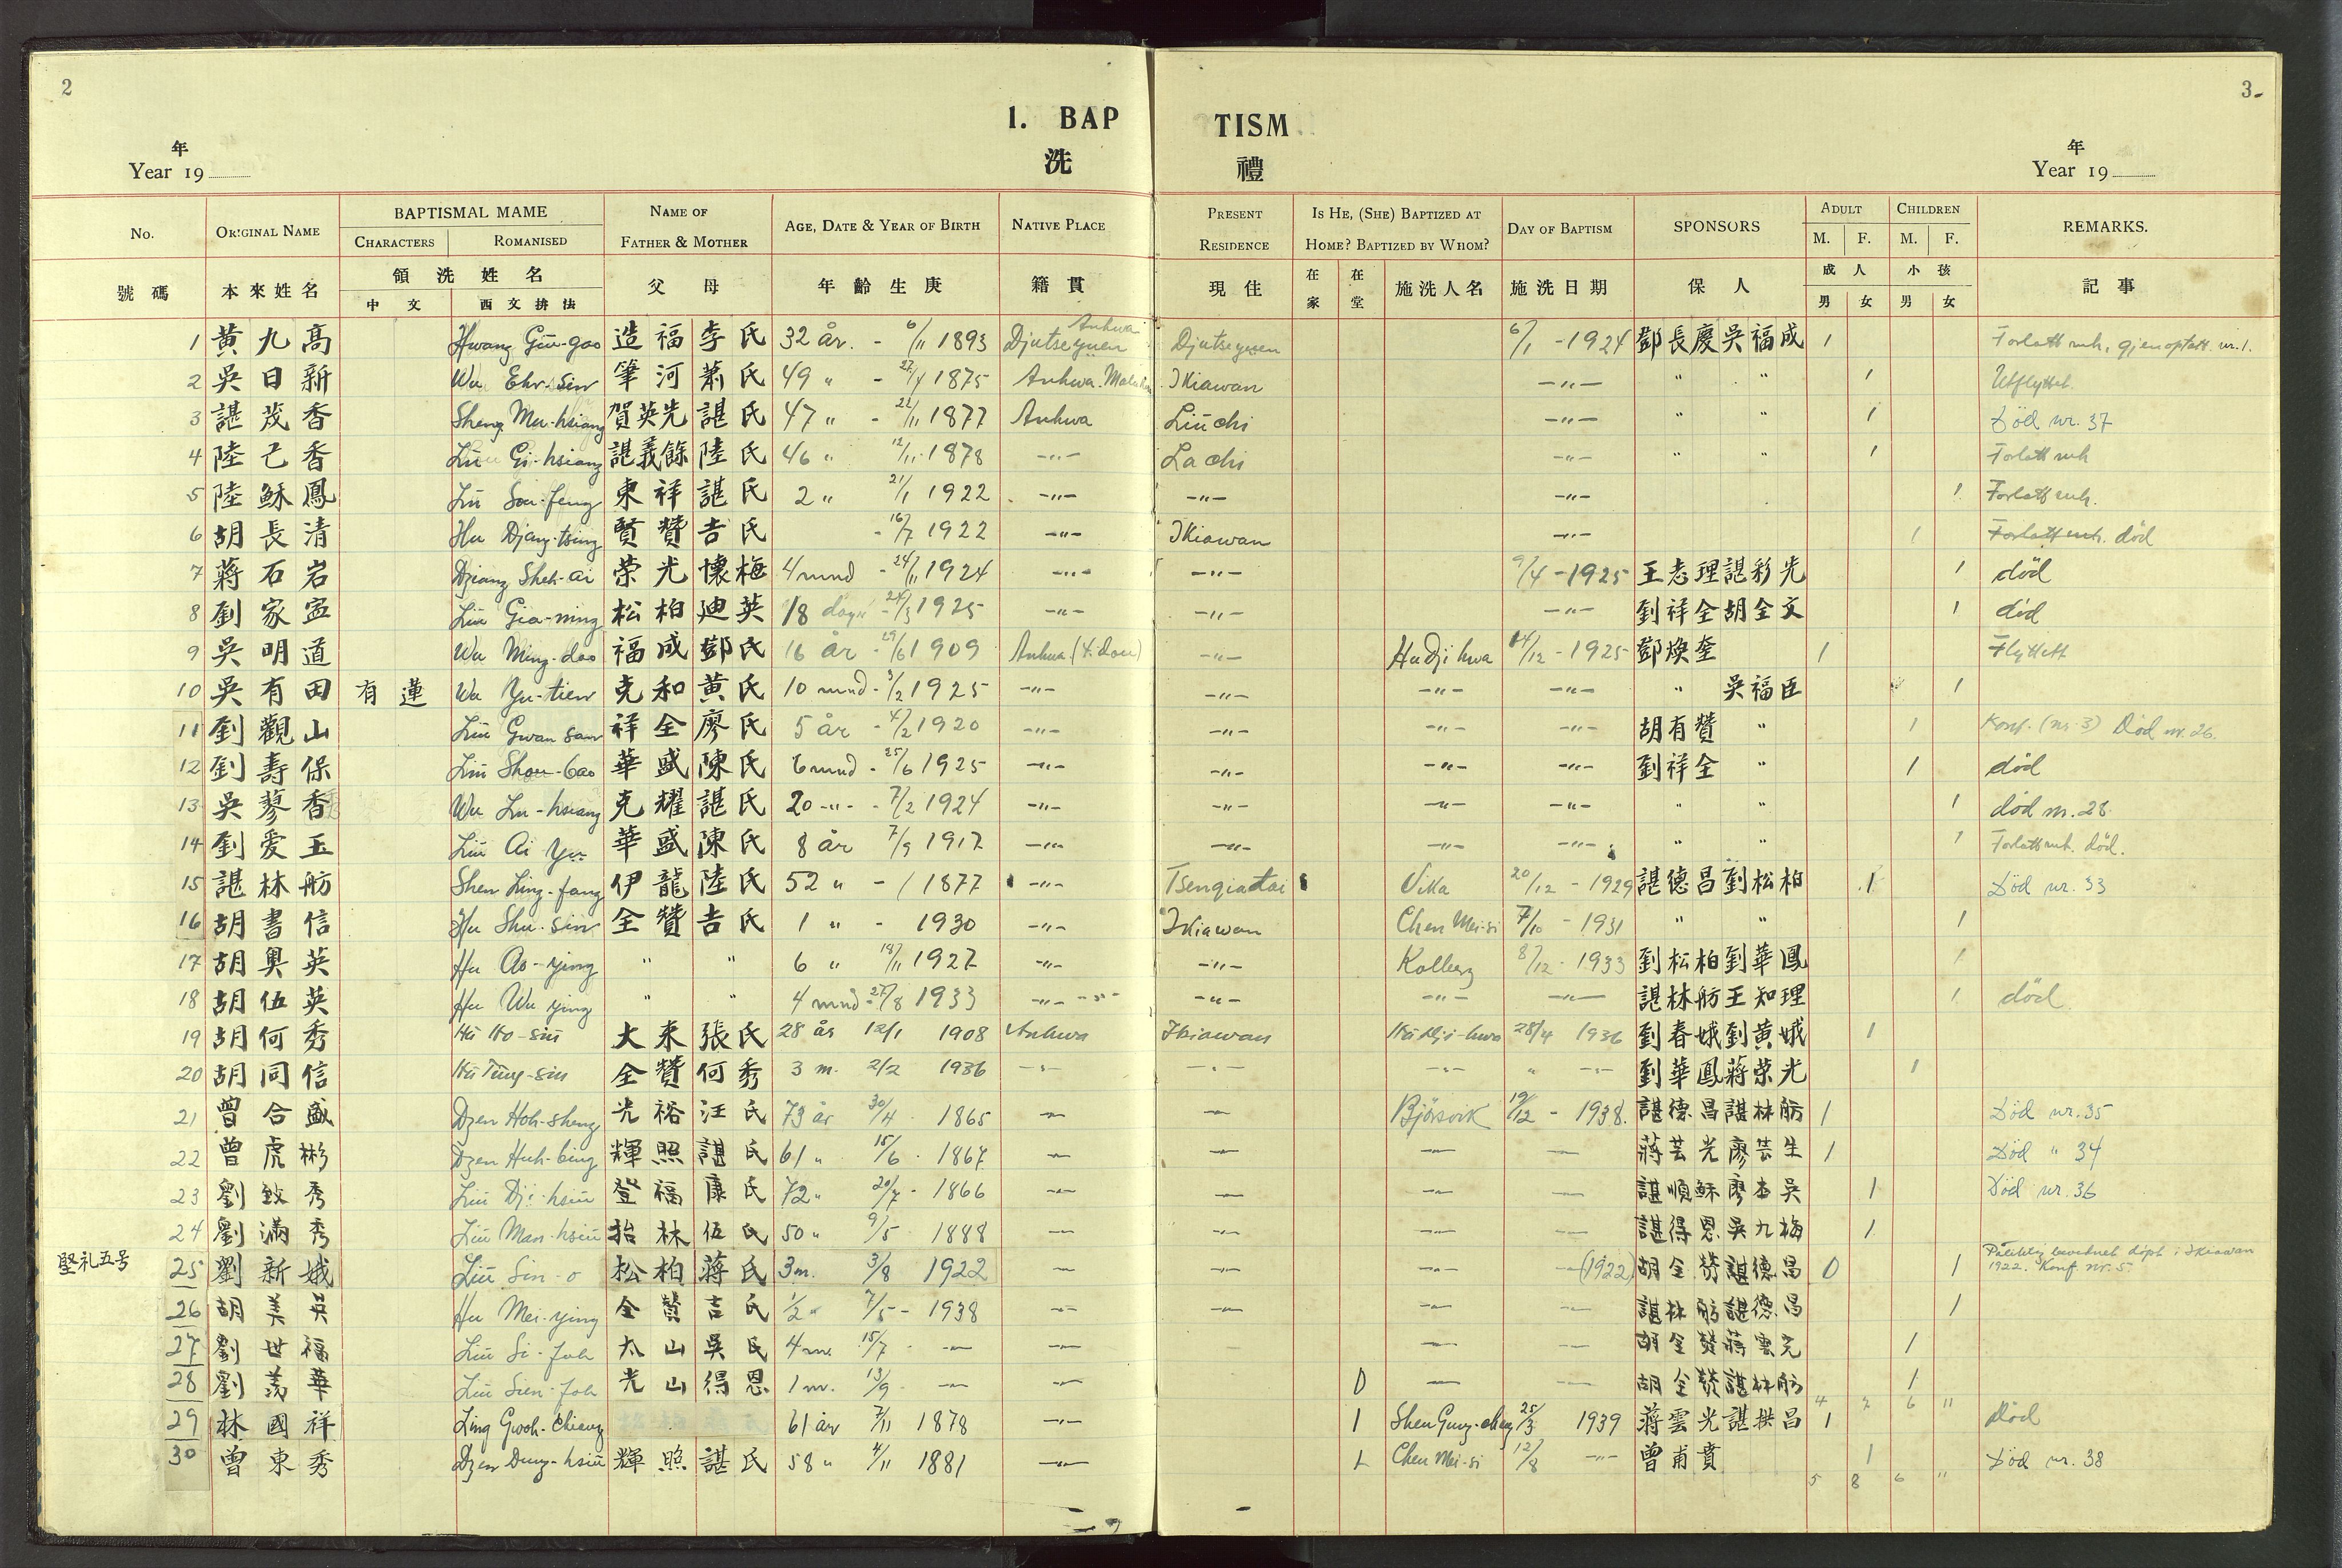 2
3
1. BAPTISM
洗禮
年
Year 19
年
Year 19
No.
ORIGINAL NAME
BAPTISMAL MAME
CHARACTERS
ROMANISED
NAME OF FATHER & MOTHER
AGE, DATE & YEAR OF BIRTH
NATIVE PLACE
PRESENT RESIDENCE
IS HE, (SHE) BAPTIZED AT HOME? BAPTIZED BY WHOM?
DAY OF BAPTISM
SPONSORS
ADULT
M. F.
CHILDREN
M. F.
REMARKS.
號碼
本來姓名
領洗姓名
中文
西文排法
父母
年齡生庚
籍貫
現住
在家
在堂
施洗人名
施洗日期
保人
成人
男 女
小孩
男 女
記事
1 黃九高 Hwang Giu-gao 造福 李氏 32 år. - 6/11 1893 Anhwa Djutseyuen Djutseyuen 6/1 - 1924 鄧長慶 吳福成 1 Forlatt mh, gjenoptatt nr. 1.
2 吳日新 Wu Ehr-sin 筆河 蕭氏 49 " - 1875 Anhwa Ikiawan -"- " " 1 Utflyttet
3 諶茂香 Sheng Mu-hsiang 賀英光 諶氏 47 " - 22/11 1877 Anhwa Liuchi -"- " " 1 Död nr. 37
4 陸己香 Lu Gi-hsiang 諶義餘 陸氏 46 " 12/11 - 1878 -"- Lachi -"- " " 1 Forlatt mh
5 陸穌鳳 Lu Sou-feng 東祥 諶氏 2 " 21/1 1922 -"- -"- -"- 1 Forlatt mh.
6 胡長清 Hu Djang-tsing 賢贊 吉氏 - 16/7 1922 -"- Ikiawan -"- 1 Forlatt mh. död
7 蔣石岩 Dziang Sheh-ai 荣光 懷梅 4 mnd - 24/11 1924 -"- -"- 9/4 - 1925 王志理 諶彩光 1 död
8 劉家寍 Liu Gia-ning 松柏 迪英 18 dager - 24/3 1925 -"- -"- -"- 劉祥全 胡全文 1 död
9 吳明道 Wu Ming-dao 福成 鄧氏 16 år - 29/6 1909 Anhwa (4. dou) -"- Hu Dji hwa 14/12 - 1925 鄧焕奎 1 Flyttett
10 吳有田 有蓮 Wu Yu-tien 克和 黃氏 10 mnd - 3/2 1925 -"- -"- -"- -"- " 吳福臣 1
11 劉觀山 Liu Gwan san 祥全 廖氏 5 år - 4/2 1920 -"- -"- -"- -"- 胡有贊 " 1 Konf. (nr. 3) Död nr. 26.
12 劉壽保 Liu Shou-bao 華盛 陳氏 6 mnd - 25/6 1925 -"- -"- -"- -"- 劉祥全 " 1 död
13 吳蓼香 Wu Lu-hsiang 克耀 諶氏 20 -"- - 7/2 1924 -"- -"- -"- -"- " " 1 död nr. 28.
14 劉爱玉 Liu Ai Yu 華盛 陳氏 8 år 7/9 1917 -"- -"- -"- -"- " " 1 Forlatt mh. död.
15 諶林舫 Shen Ling-fang 伊龍 陸氏 52 " - / 1877 -"- Tsengiatai Vika 20/12 - 1929 諶德昌 劉松柏 1 Död nr. 33
16 胡書信 Hu Shu-sin 全贊 吉氏 1 " - 1930 -"- Ikiawan Chen Mei-si 7/10 - 1931 " " 1
17 胡奧英 Hu Ao-ying " " 6 " 18/11 1927 -"- -"- Kolberg 8/12 - 1933 劉松柏 劉華鳳 1
18 胡伍英 Hu Wu ying " " 4 mnd - 27/8 1933 -"- -"- -"- -"- 諶林舫 王知理 1 död
19 胡何秀 Hu Ho-siu 大来 張氏 28 år 12/1 1908 Anhwa Ikiawan Hu Dji-hwa 28/4 1936 劉春娥 劉黄娥 1
20 胡同信 Hu Tung-sin 全贊 何秀 3 m. 2/2 1936 -"- -"- -"- " -"- 劉華鳳 蔣荣光 1
21 曾合盛 Dzen Hoh-sheng 光裕 汪氏 73 år 30/4 - 1865 -"- -"- Björsvik 19/12 - 1938. 諶德昌 諶林舫 1 Död nr. 35
22 曾虎彬 Dzen Huh-bing 輝照 諶氏 61 " 15/6 - 1867 -"- -"- -"- -"- 蔣芸光 廖芸生 1 Död " 34
23 劉致秀 Liu Dji-hsiu 登福 康氏 72 " 20/7 - 1866 -"- -"- -"- -"- 諶順穌 廖杏吳 1 Död nr. 36
24 劉滿秀 Liu Man-hsiu 抬林 伍氏 50 " 9/5 - 1888 -"- -"- -"- -"- 諶得恩 吳九梅 1
堅礼五号
25 劉新娥 Liu Sin-o 松柏 蔣氏 3 m. 3/8 1922 -"- -"- -"- -"- (1922) 胡全赞 諶德昌 0 1 döpt i Ikiawan 1922. Konf. nr. 5
26 胡美吳 Hu Mei-ying 全贊 吉氏 1/2 " 7/5 - 1938 -"- -"- -"- -"- 諶林舫 諶德昌 1
27 劉世福 Liu Si-foh 太山 吳氏 4 m. 15/7 - -"- -"- -"- -"- 胡全赞 蔣雲光 1
28 劉羨華 Liu Sien-foh 光山 得恩 1 m. 13/9 - -"- -"- 0 -"- -"- 胡全赞 諶林舫 1
4 7 6 11
29 林國祥 Ling Gwoh-Chiang 61 år 7/11 1878 -"- 1 Shen Gung-chang 25/3 1939 蔣雲光 諶拱昌 1 Död
30 曾東秀 Dzen Dung-hsiu 輝照 諶氏 58 " 4/11 1881 -"- 1 Chen Mei-si 12/8 -"- 曾甫賁 1 Död nr. 38
5 8 6 11